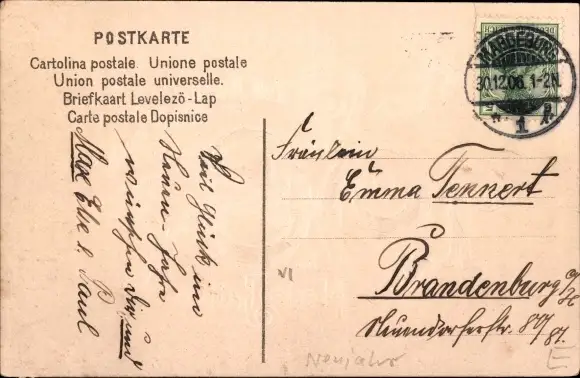 POSTKARTE
Cartolina postale. Unione postale
Union postale universelle.
Briefkaart Levelezö-Lap
Carte postale Dopisnice
MAGDEBURG
30.12.06. 1-2N.
1
Viel Glück im
Neuen-Jahre
wünschen dir und
Max Else u. Paul
Fräulein
Emma Tennert
Brandenburg a/H
Neuendorferstr.
VI
Neujahr
E